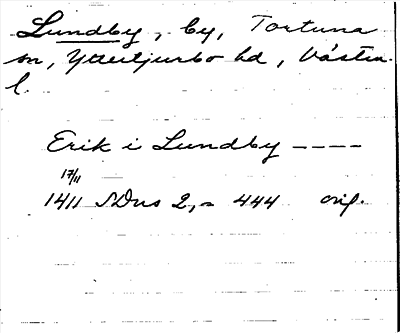 Lundby, by, Tortuna
sn, Yttertjurbo hd, Västm.
l.
Erik i Lundby ----
17/11
1411 SDns 2, 444 orig.